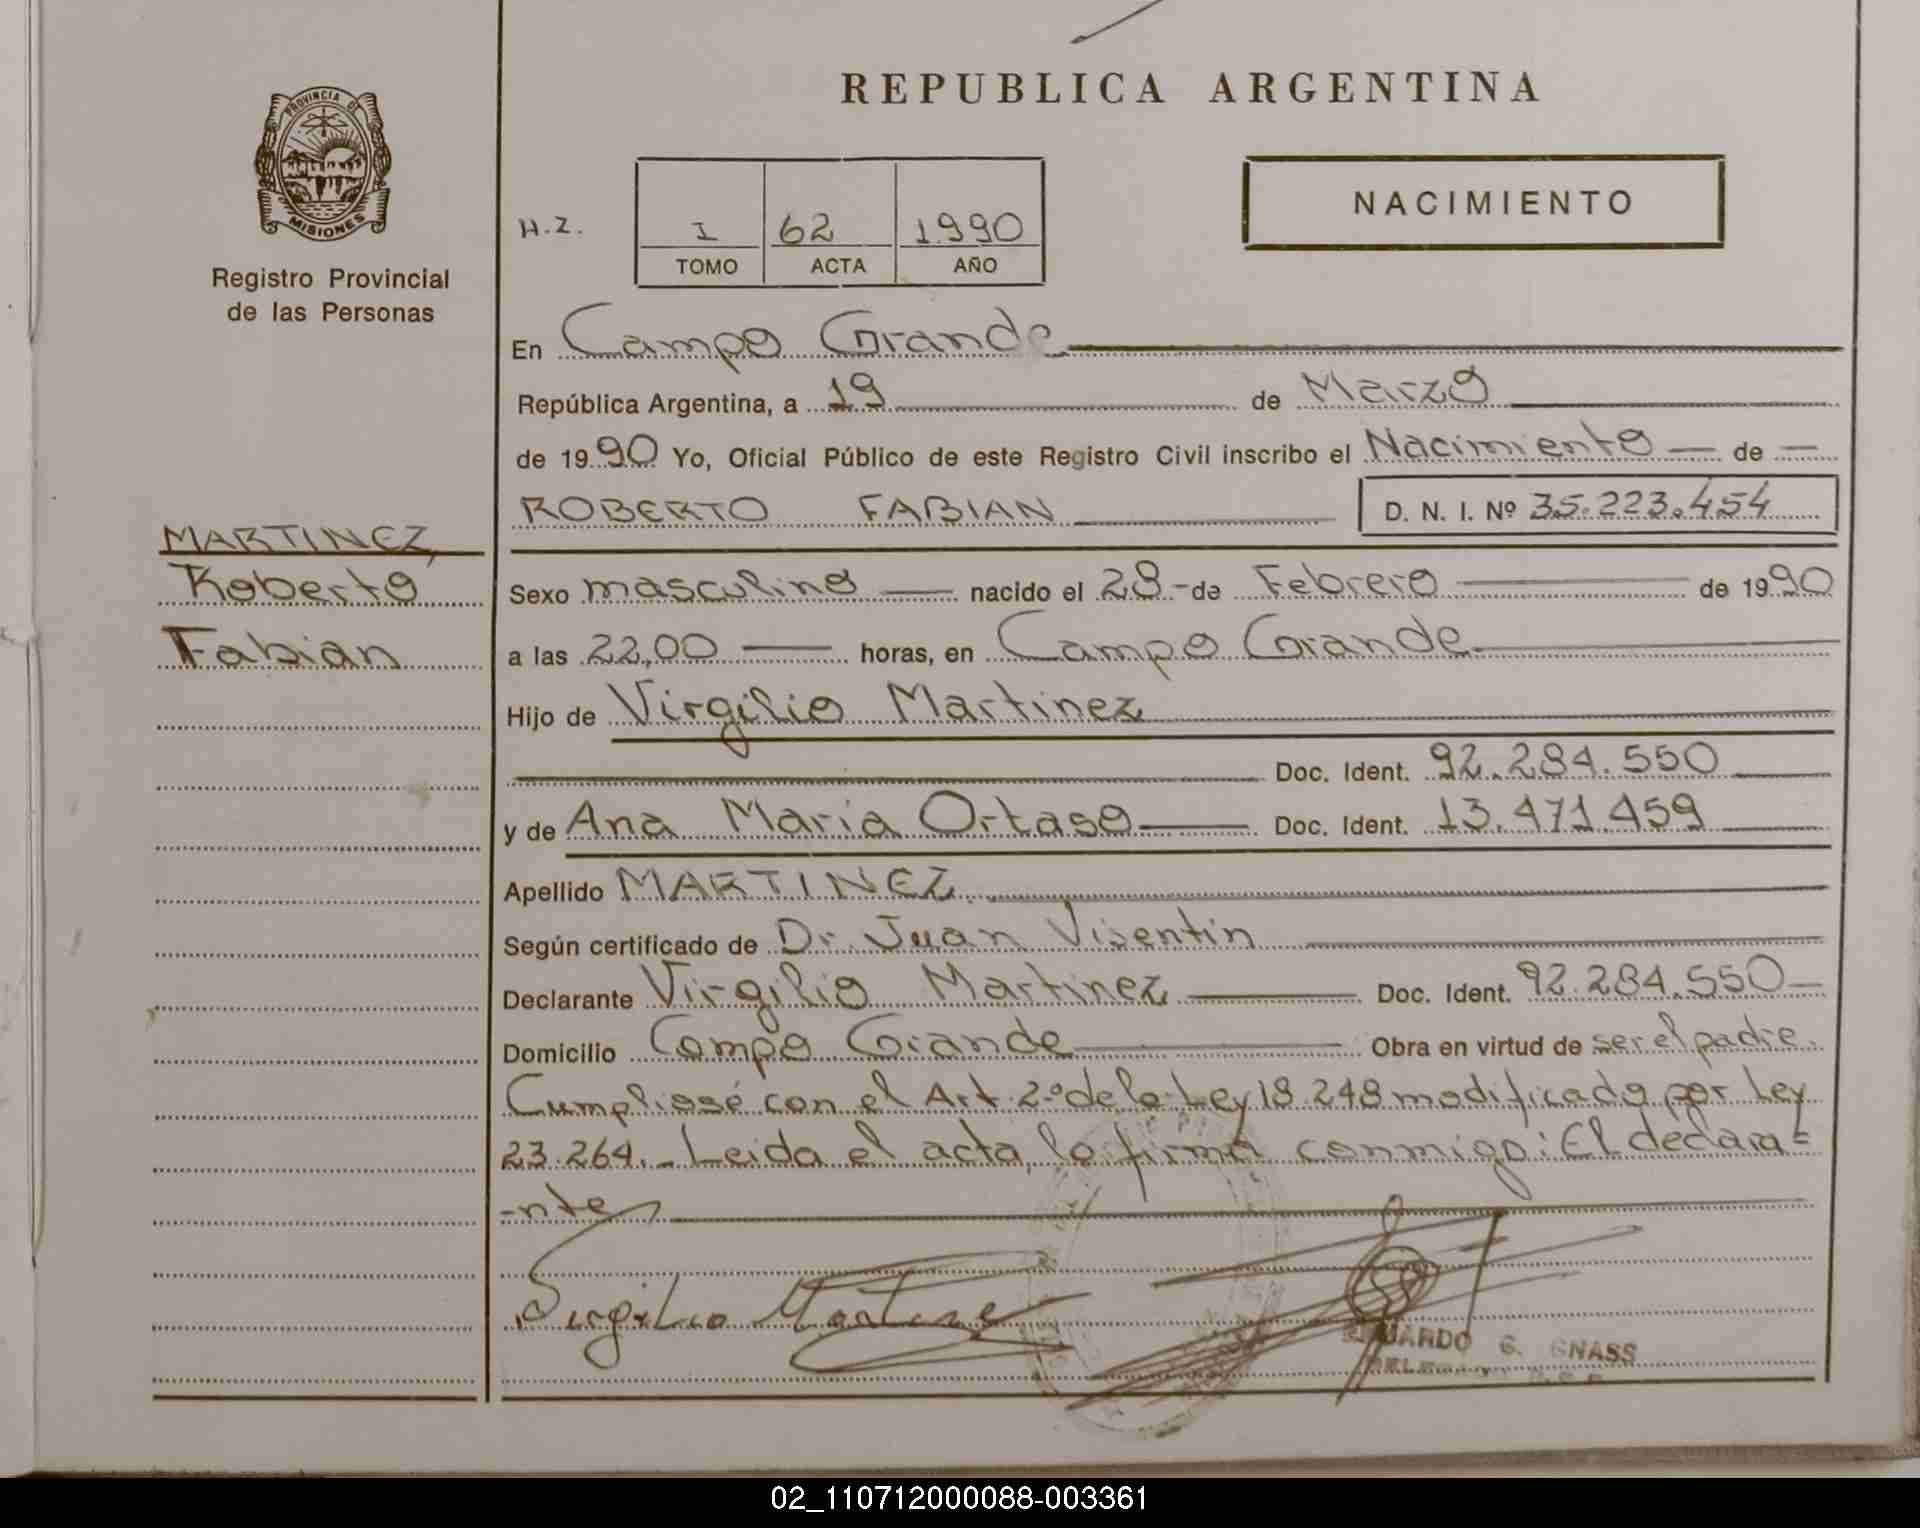 PROVINCIA DE
MISIONES
Registro Provincial
de las Personas
MARTINEZ,
Roberto
Fabian
REPUBLICA ARGENTINA
NACIMIENTO
H.Z.
I 62 1990
TOMO ACTA AÑO
En Campo Grande
República Argentina, a 19 de Marzo
de 1990 Yo, Oficial Público de este Registro Civil inscribo el Nacimiento — de —
ROBERTO FABIAN D. N. I. Nº 35.223.454
Sexo masculino — nacido el 28 - de Febrero — de 1990
a las 22,00 — horas, en Campo Grande
Hijo de Virgilio Martinez
Doc. Ident. 92.284.550
y de Ana Maria Ortaso — Doc. Ident. 13.471.459
Apellido MARTINEZ
Según certificado de Dr. Juan Visentin
Declarante Virgilio Martinez — Doc. Ident. 92.284.550 —
Domicilio Campo Grande — Obra en virtud de ser el padre.
Cumpliose con el Art. 2º de la Ley 18.248 modificado por Ley
23.264. - Leida el acta, la firma conmigo: El declara=
-nte
Virgilio Martinez
EDUARDO G. GNASS
02_110712000088-003361